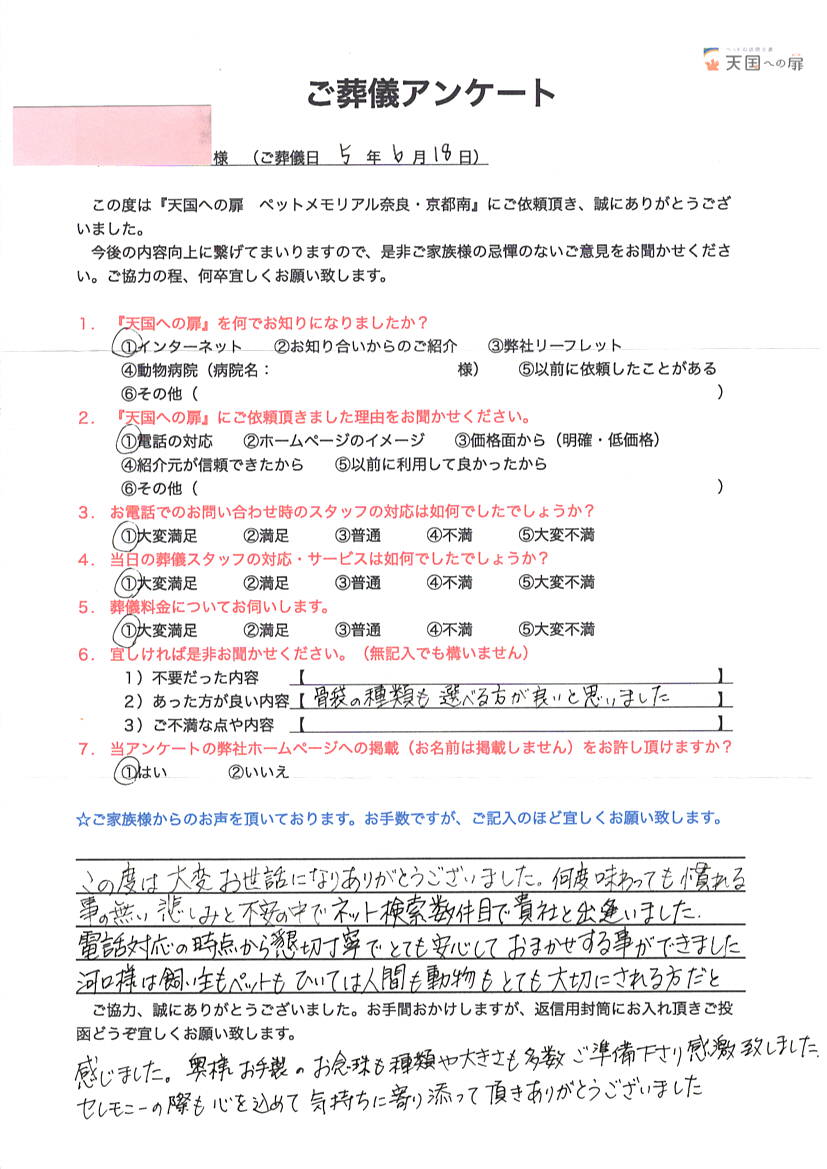 ペットのお葬式屋
天国への扉
ご葬儀アンケート
様 （ご葬儀日 5 年 6 月 18 日）
この度は『天国への扉 ペットメモリアル奈良・京都南』にご依頼頂き、誠にありがとうござ
いました。
今後の内容向上に繋げてまいりますので、是非ご家族様の忌憚のないご意見をお聞かせくださ
い。ご協力の程、何卒宜しくお願い致します。
1． 『天国への扉』を何でお知りになりましたか？
①インターネット ②お知り合いからのご紹介 ③弊社リーフレット
④動物病院（病院名： 様） ⑤以前に依頼したことがある
⑥その他（ ）
2． 『天国への扉』にご依頼頂きました理由をお聞かせください。
①電話の対応 ②ホームページのイメージ ③価格面から（明確・低価格）
④紹介元が信頼できたから ⑤以前に利用して良かったから
⑥その他（ ）
3． お電話でのお問い合わせ時のスタッフの対応は如何でしたでしょうか？
①大変満足 ②満足 ③普通 ④不満 ⑤大変不満
4． 当日の葬儀スタッフの対応・サービスは如何でしたでしょうか？
①大変満足 ②満足 ③普通 ④不満 ⑤大変不満
5． 葬儀料金についてお伺いします。
①大変満足 ②満足 ③普通 ④不満 ⑤大変不満
6． 宜しければ是非お聞かせください。（無記入でも構いません）
1）不要だった内容 【 】
2）あった方が良い内容【 骨袋の種類も選べる方が良いと思いました 】
3）ご不満な点や内容 【 】
7． 当アンケートの弊社ホームページへの掲載（お名前は掲載しません）をお許し頂けますか？
①はい ②いいえ
☆ご家族様からのお声を頂いております。お手数ですが、ご記入のほど宜しくお願い致します。
この度は大変お世話になりありがとうございました。何度味わっても慣れる
事の無い悲しみと不安の中でネット検索数件目で貴社と出逢いました.
電話対応の時点から懇切丁寧でとても安心しておまかせする事ができました
河口様は飼い主もペットもひいては人間も動物もとても大切にされる方だと
ご協力、誠にありがとうございました。お手間おかけしますが、返信用封筒にお入れ頂きご投
函どうぞ宜しくお願い致します。
感じました。奥様お手製のお念珠も種類や大きさも多数ご準備下さり感激致しました.
セレモニーの際も心を込めて気持ちに寄り添って頂きありがとうございました